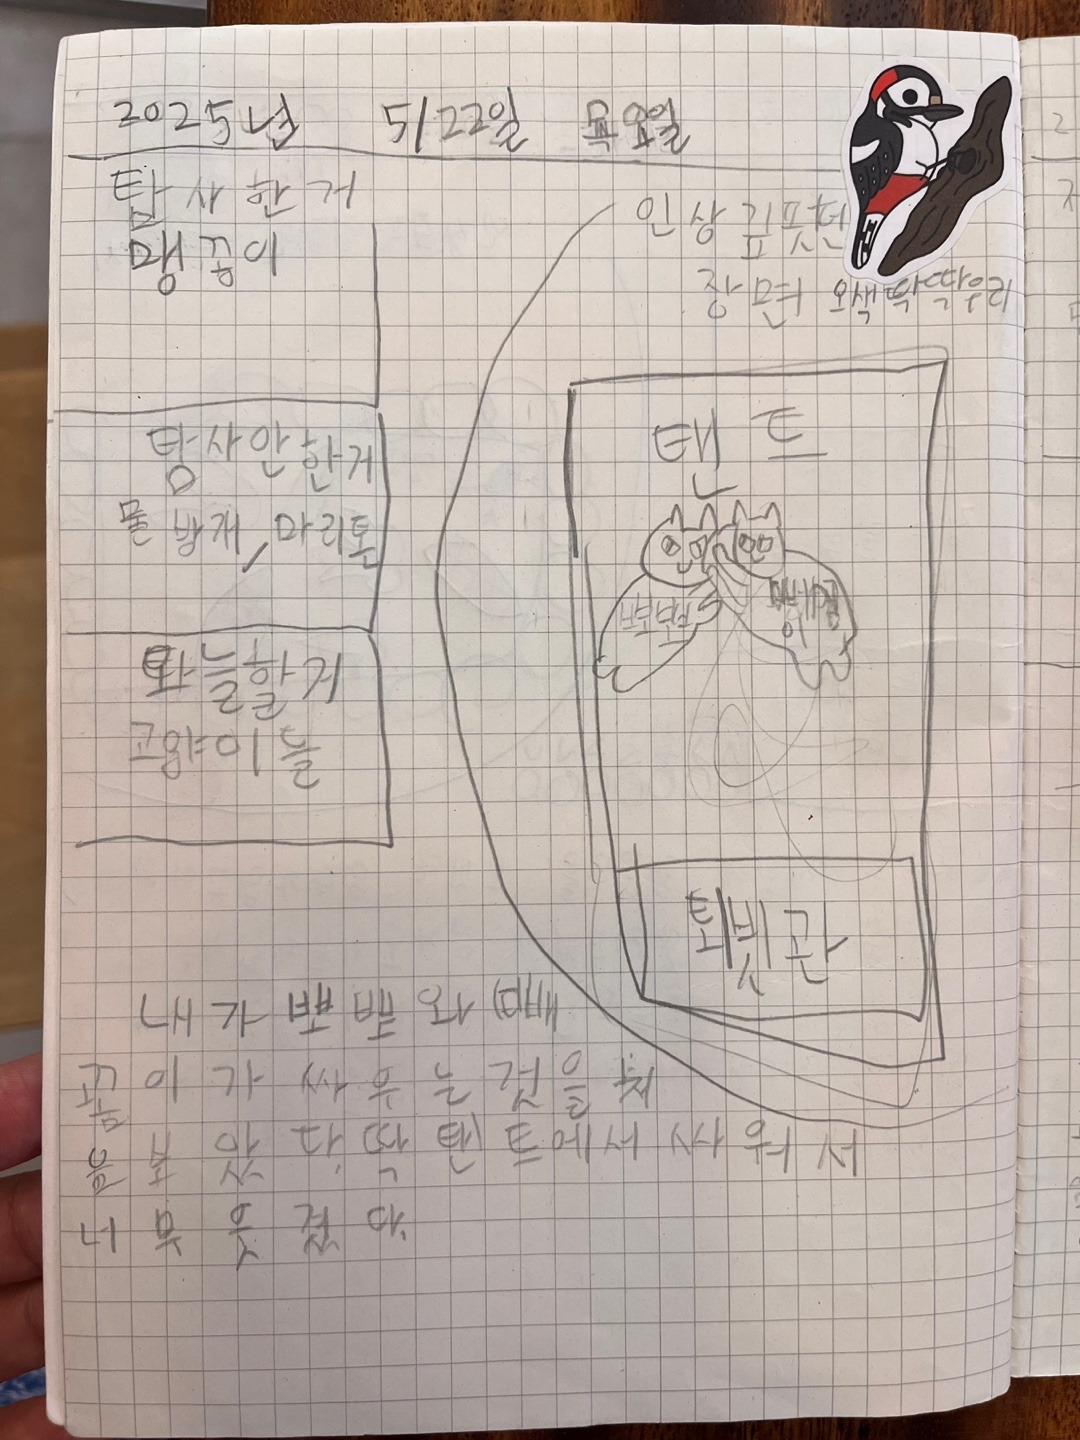 2025년 5/22일 목요일
탐사한거
맹꽁이
탐사안한거
물방개, 마리톤
관늘할거
고양이들
인상깊푸었던
장면 오색딱딱우리
탠트
뽀뽀
이
퇴빗관
내가 뽀뽀와
꼼이가 싸우는것을 처
음보았다. 딱 탠트에서 싸워서
너무 웃겼다.